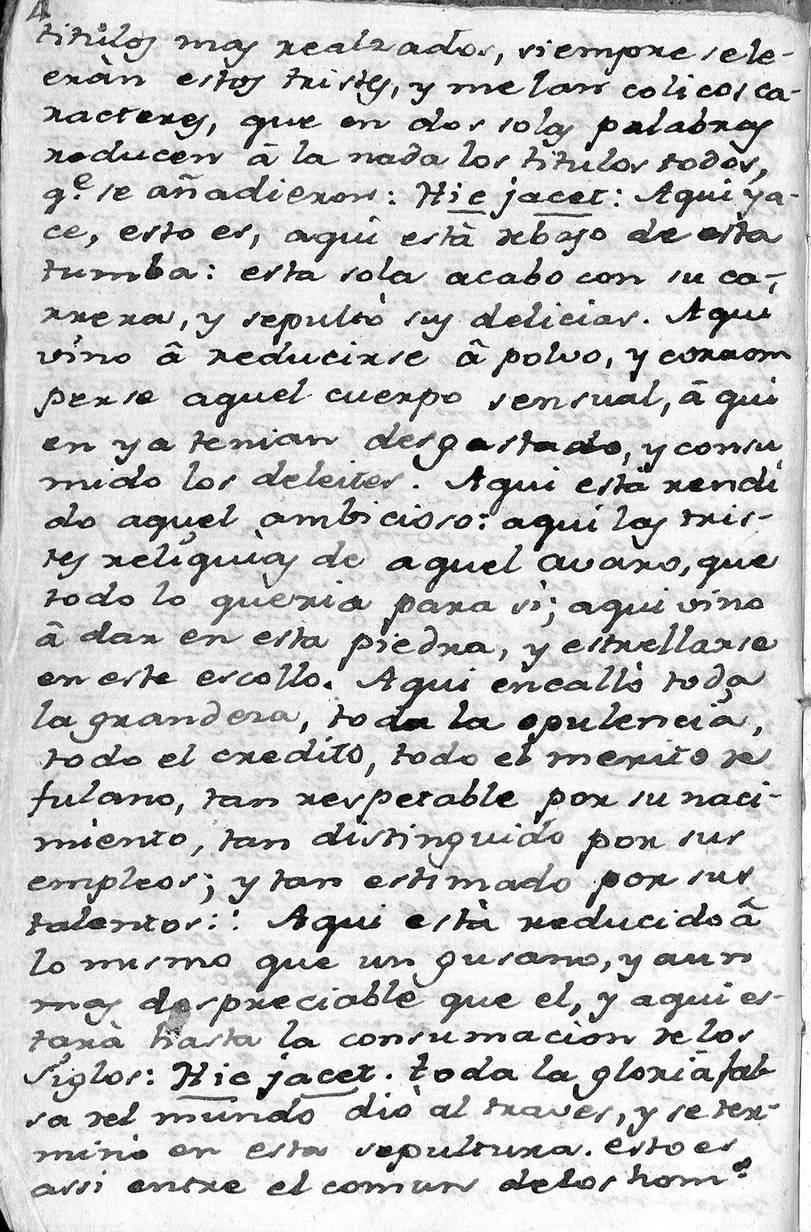 4
titulos mas realzados, siempre se le-
eràn estos tristes, y melancolicos ca-
racteres, que en dos solas palabras
reducen â la nada los titulos todos,
q.e se añadieron: Hic jacet: Aqui ya-
ce, esto es, aquì està debajo de esta
tumba: esta sola acabo con su ca-
rrera, y sepultò sus delicias. Aqui
vino â reducirse â polvo, y corrom
perse aquel cuerpo sensual, â qui
en ya tenian desgastado, y consu
mido los deleites. Aqui està rendi
do aquel ambicioso: aquì las tris-
tes reliquias de aquel avaro, que
todo lo queria para sì; aqui vino
â dar en esta piedra, y estrellarse
en este escollo. Aqui encallò toda
la grandeza, toda la opulencia,
todo el credito, todo el merito de
fulano, tan respetable por su naci-
miento, tan distinguido por sus
empleos; y tan estimado por sus
talentos:: Aqui està reducido â
lo mismo que un gusano, y aun
mas despreciable que el, y aqui es-
tarà hasta la consumacion de los
Siglos: Hic jacet. toda la gloria fal
sa del mundo diò al traves, y se ter-
minò en esta sepultura. esto es
assi entre el comun de los hom.s